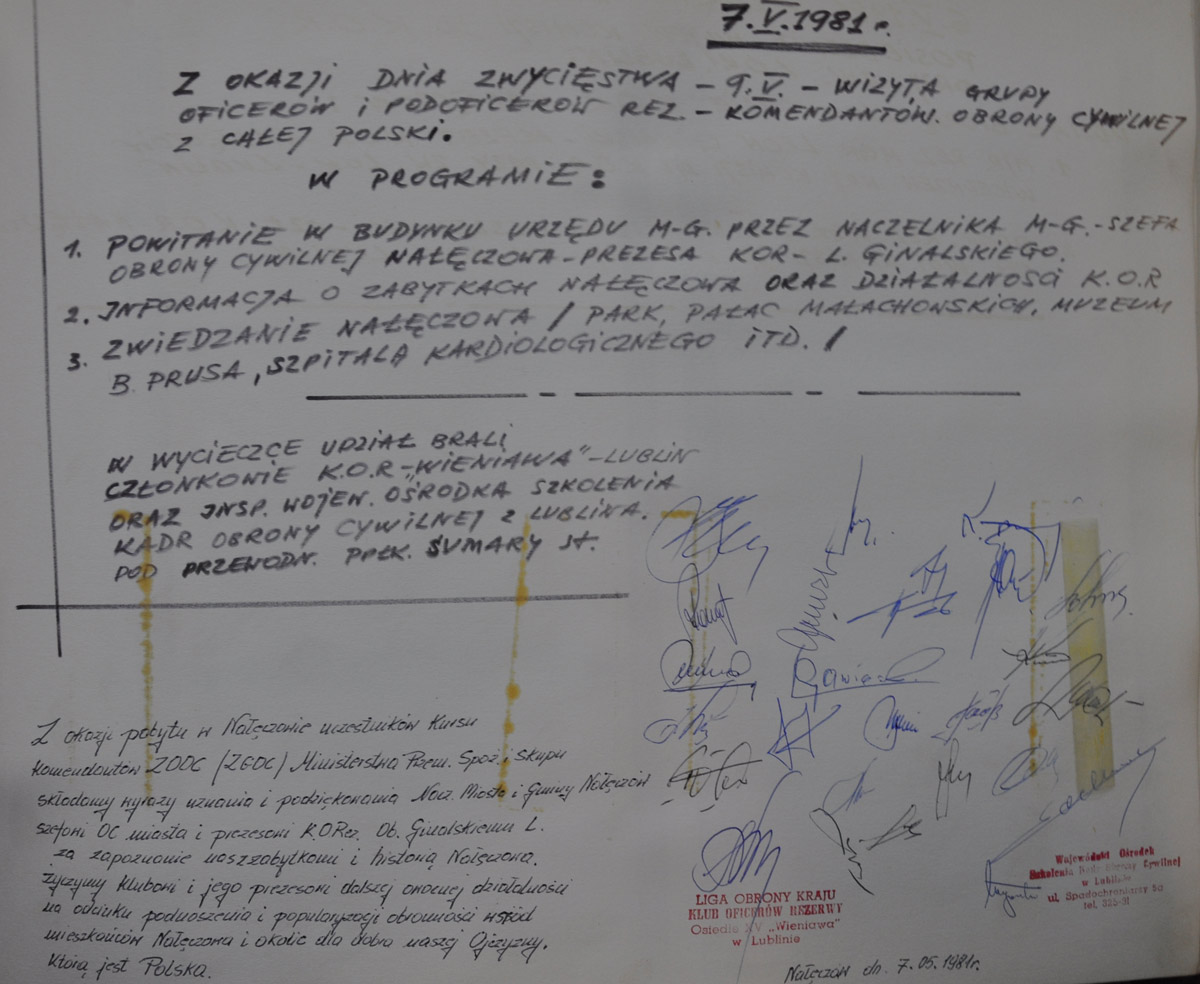 7.V.1981r.
Z OKAZJI DNIA ZWYCIĘSTWA – 9.V. – WIZYTA GRUPY
OFICERÓW I PODOFICERÓW REZ. – KOMENDANTÓW. OBRONY CYWILNEJ
Z CAŁEJ POLSKI.
W PROGRAMIE:
1. POWITANIE W BUDYNKU URZĘDU M-G. PRZEZ NACZELNIKA M-G.-SZEFA
OBRONY CYWILNEJ NAŁĘCZOWA – PREZESA KOR – L. GINALSKIEGO.
2. INFORMACJA O ZABYTKACH NAŁĘCZOWA ORAZ DZIAŁALNOŚCI K.O.R
3. ZWIEDZANIE NAŁĘCZOWA / PARK, PAŁAC MAŁACHOWSKICH, MUZEUM
B. PRUSA, SZPITALA KARDIOLOGICZNEGO ITD. /
W WYCIECZCE UDZIAŁ BRALI
CZŁONKOWIE K.O.R – „WIENIAWA" – LUBLIN
ORAZ INSP. WOJEW. OŚRODKA SZKOLENIA
KADR OBRONY CYWILNEJ Z LUBLINA.
POD PRZEWODN. PPŁK. SUMARY ST.
Z okazji pobytu w Nałęczowie uczestników Kursu
Komendantów ZOOC (ZGOC) Ministerstwa Przem. Spoż. i Skupu
składamy wyrazy uznania i podziękowania Nacz. Miasta i Gminy Nałęczów
szefowi OC miasta i prezesowi K.O.Rez. Ob. Ginalskiemu L.
za zapoznanie nas z zabytkami i historią Nałęczowa.
Życzymy Klubowi i jego prezesowi dalszej owocnej działalności
na odcinku podnoszenia i popularyzacji obronności wśród
mieszkańców Nałęczowa i okolic dla dobra naszej Ojczyzny,
którą jest Polska.
LIGA OBRONY KRAJU
KLUB OFICERÓW REZERWY
Osiedle XV „Wieniawa"
w Lublinie
Wojewódzki Ośrodek
Szkolenia Kadr Obrony Cywilnej
w Lublinie
ul. Spadochroniarzy 5a
tel. 325-31
Nałęczów dn. 7.05.1981r.